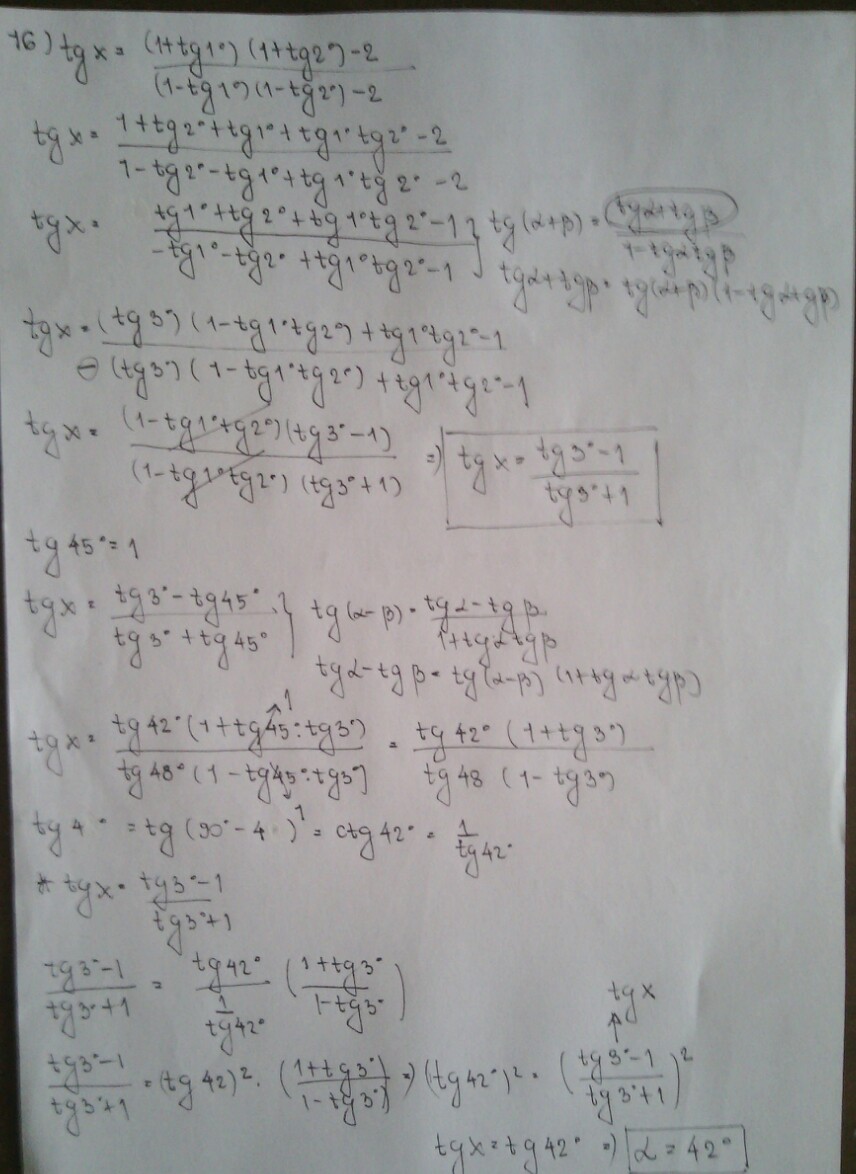 16) tg x = (1+tg1°)(1+tg2°)-2 / (1-tg1°)(1-tg2°)-2
tg x = 1+tg2°+tg1°+tg1°tg2°-2 / 1-tg2°-tg1°+tg1°tg2°-2
tg x = tg1°+tg2°+tg1°tg2°-1 / -tg1°-tg2°+tg1°tg2°-1 } tg(α+β) = tgα+tgβ / 1-tgαtgβ
tgα+tgβ = tg(α+β)(1-tgαtgβ)
tg x = (tg3°)(1-tg1°tg2°)+tg1°tg2°-1 / ⊖(tg3°)(1-tg1°tg2°)+tg1°tg2°-1
tg x = (1-tg1°tg2°)(tg3°-1) / (1-tg1°tg2°)(tg3°+1) ⇒ tg x = tg3°-1 / tg3°+1
tg 45° = 1
tg x = tg3°-tg45° / tg3°+tg45° } tg(α-β) = tgα-tgβ / 1+tgαtgβ
tgα-tgβ = tg(α-β)(1+tgαtgβ)
1
tg x = tg42°(1+tg45°·tg3°) / tg48°(1-tg45°·tg3°) = tg42°(1+tg3°) / tg48(1-tg3°)
1
tg 4 ° = tg(90°-4 ) = ctg42° = 1 / tg42°
* tg x = tg3°-1 / tg3°+1
tg3°-1 / tg3°+1 = tg42° / 1/tg42° (1+tg3° / 1-tg3°)
tg x
↑
tg3°-1 / tg3°+1 = (tg42)² · (1+tg3° / 1-tg3°) ⇒ (tg42°)² = (tg3°-1 / tg3°+1)²
tg x = tg42° ⇒ α = 42°